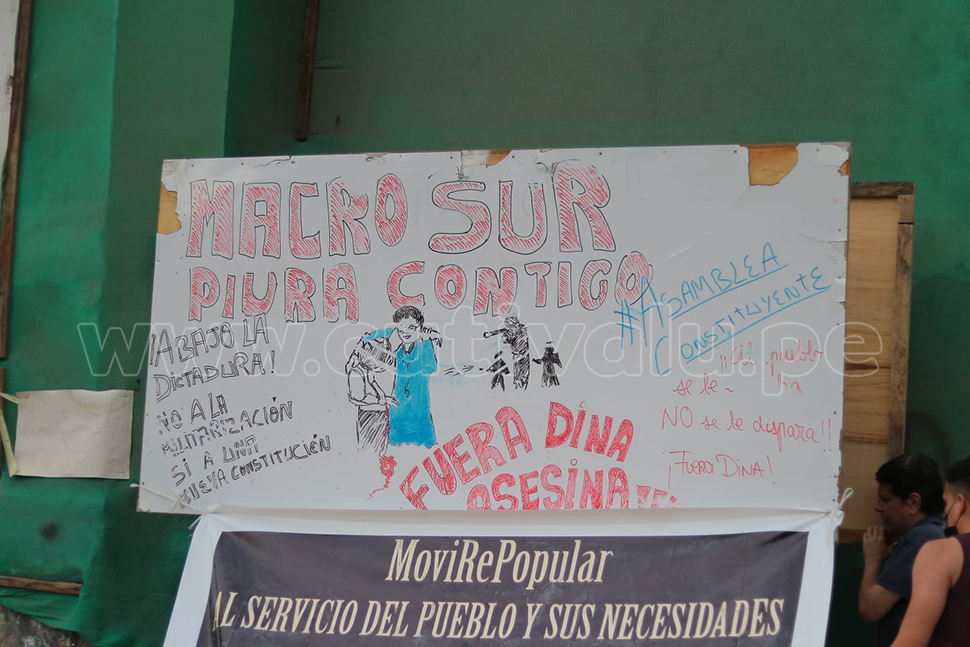 MACRO SUR
PIURA CONTIGO
¡ABAJO LA
DICTADURA!
NO A LA
MILITARIZACIÓN
SI A UNA
NUEVA CONSTITUCIÓN
#ASAMBLEA
CONSTITUYENTE
pueblo
se le
NO se le dispara!!
¡Fuera DINA!
FUERA DINA
ASESINA!!!
www.cutivalu.pe
MoviRePopular
AL SERVICIO DEL PUEBLO Y SUS NECESIDADES